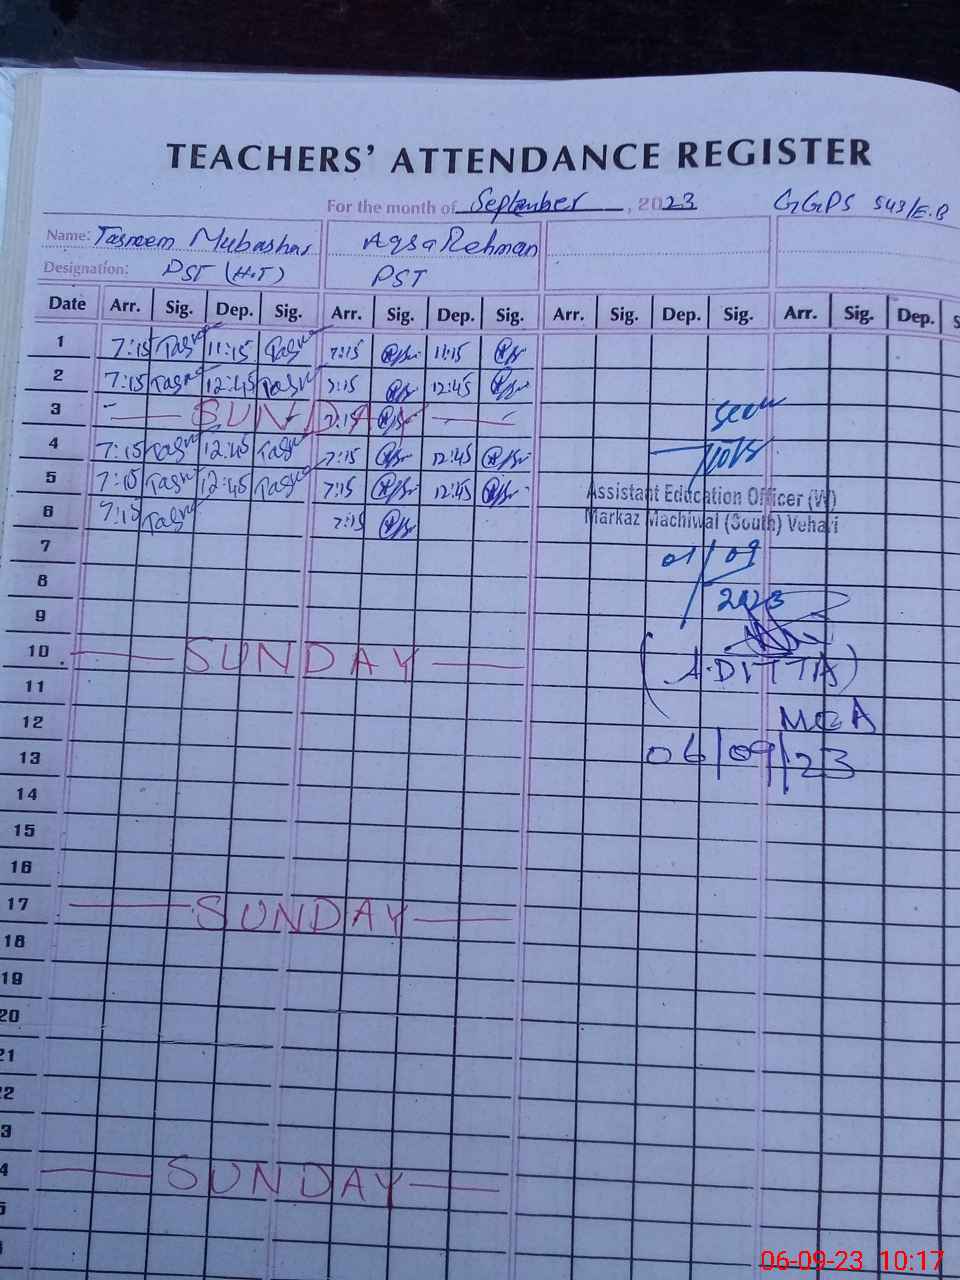 TEACHERS' ATTENDANCE REGISTER
For the month of September, 2023 GGPS 543/E.B
Name: Tasneem Mubashar Aqsa Rehman
Designation: PST (H.T) PST
Date Arr. Sig. Dep. Sig. Arr. Sig. Dep. Sig. Arr. Sig. Dep. Sig. Arr. Sig. Dep. S
1 7:15 11:15 7:15 11:15
2 7:15 12:45 7:15 12:45
3 SUNDAY 7:15
4 7:15 12:45 7:15 12:45
5 7:15 12:45 7:15 12:45
6 7:15 7:15
Seen
Assistant Education Officer (W)
Markaz Machiwal (South) Vehari
7
01/09
8
2023
9
10 SUNDAY
(A. DITTA)
11
12
MEA
13
06/09/23
14
15
16
17 SUNDAY
18
19
20
21
22
3
4 SUNDAY
5
06-09-23 10:17